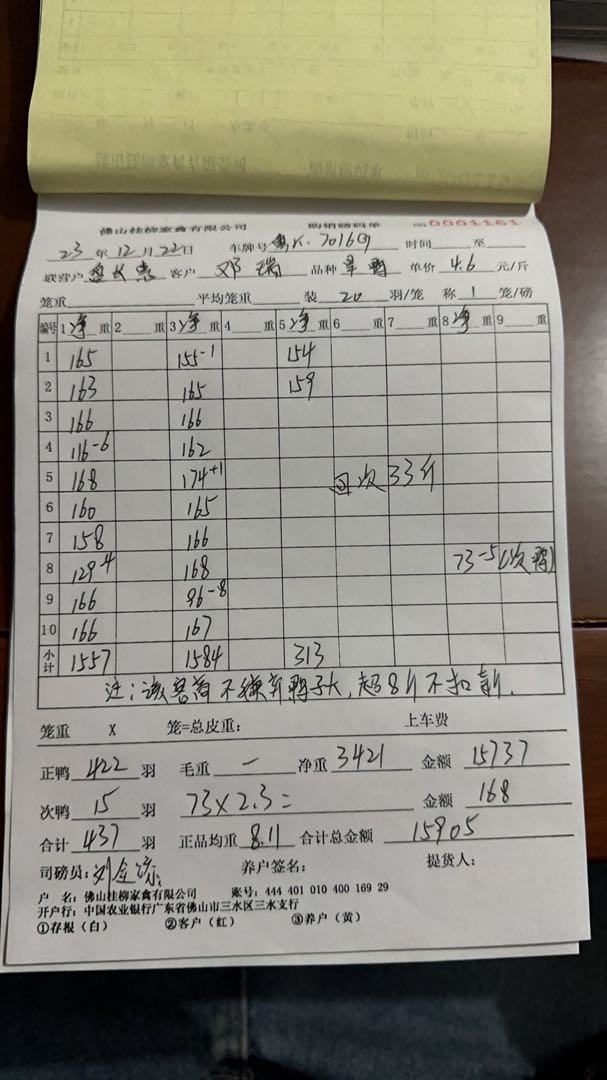 佛山桂柳家禽有限公司 购销磅码单 0001161
23年12月22日 车牌号 粤K·70169 时间 至
联营户 客户 邓瑞 品种 旱鸭 单价 4.6 元/斤
笼重 平均笼重 装 20 羽/笼 称 1 笼/磅
编号 1 净 重 2 重 3 净 重 4 重 5 净 重 6 重 7 重 8 净 重 9 重
1 165 155-1 154
2 163 165 159
3 166 166
4 116-6 162
5 168 174+1 回次33斤
6 160 165
7 158 166
8 129-4 168 73-5(次鸭)
9 166 96-8
10 166 167
小计 1557 1584 313
注:该客商不嫌弃鸭子大,超8斤不扣款.
笼重 X 笼=总皮重: 上车费
正鸭 422 羽 毛重 — 净重 3421 金额 15737
次鸭 15 羽 73×2.3= 金额 168
合计 437 羽 正品均重 8.11 合计总金额 15905
司磅员: 刘 养户签名: 提货人:
户 名:佛山桂柳家禽有限公司 账号:444 401 010 400 169 29
开户行:中国农业银行广东省佛山市三水区三水支行
①存根(白) ②客户(红) ③养户(黄)